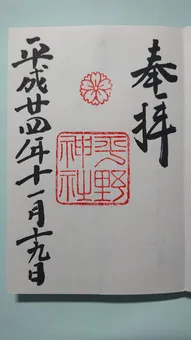 奉拝
平野神社
平成廿四年十一月十九日